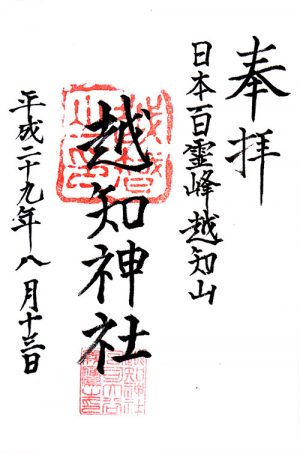 奉拝
日本百霊峰越知山
越知神社
平成二十九年八月十三日